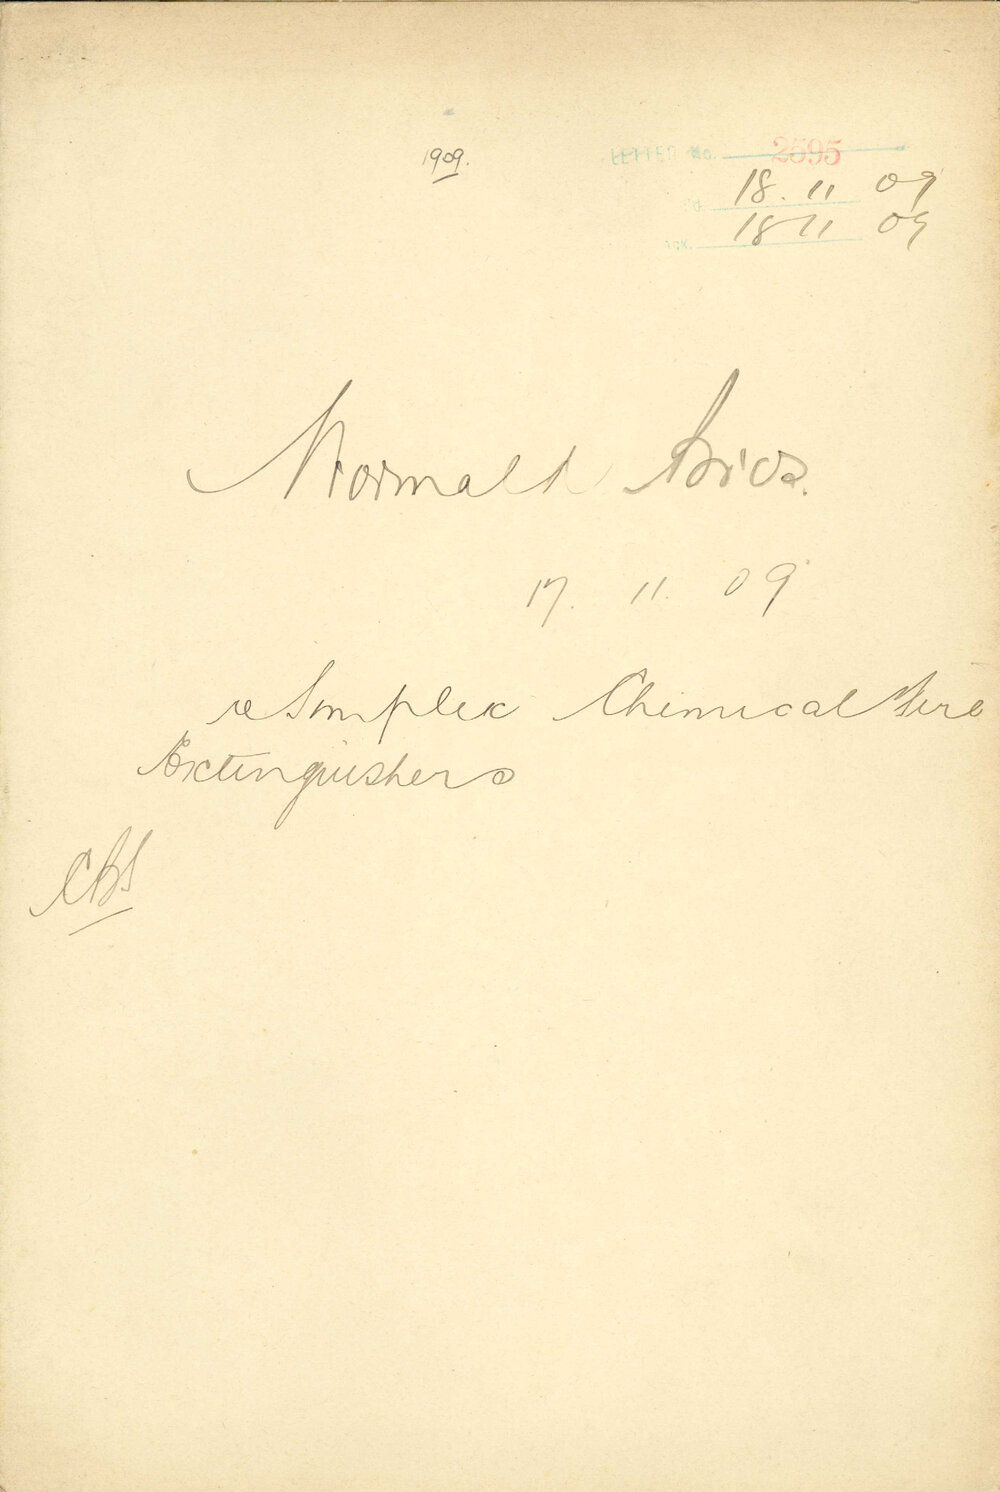 1909.
LETTER No. 2595
'd 18. 11 09
ack. 18 11 09
Wormald Bros.
17. 11. 09
re Simplex Chemical Fire
Extinguishers